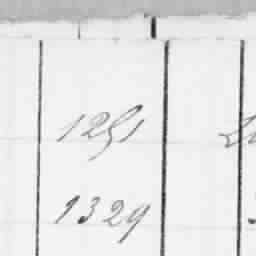 1251
1329